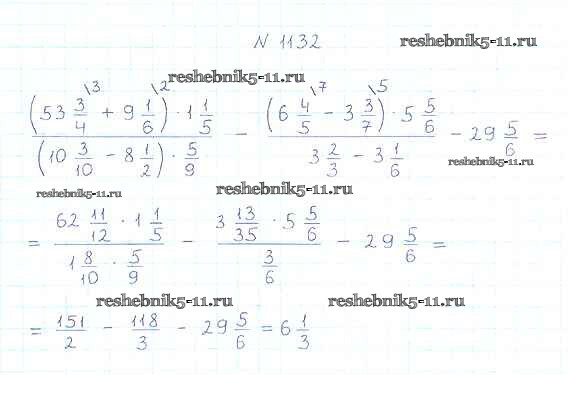 N 1132
reshebnik5-11.ru
reshebnik5-11.ru
\3 \2 \7 \5
(53 3/4 + 9 1/6) · 1 1/5 / (10 3/10 - 8 1/2) · 5/9 - (6 4/5 - 3 3/7) · 5 5/6 / 3 2/3 - 3 1/6 - 29 5/6 =
reshebnik5-11.ru
reshebnik5-11.ru
reshebnik5-11.ru
= 62 11/12 · 1 1/5 / 1 8/10 · 5/9 - 3 13/35 · 5 5/6 / 3/6 - 29 5/6 =
reshebnik5-11.ru reshebnik5-11.ru
= 151/2 - 118/3 - 29 5/6 = 6 1/3